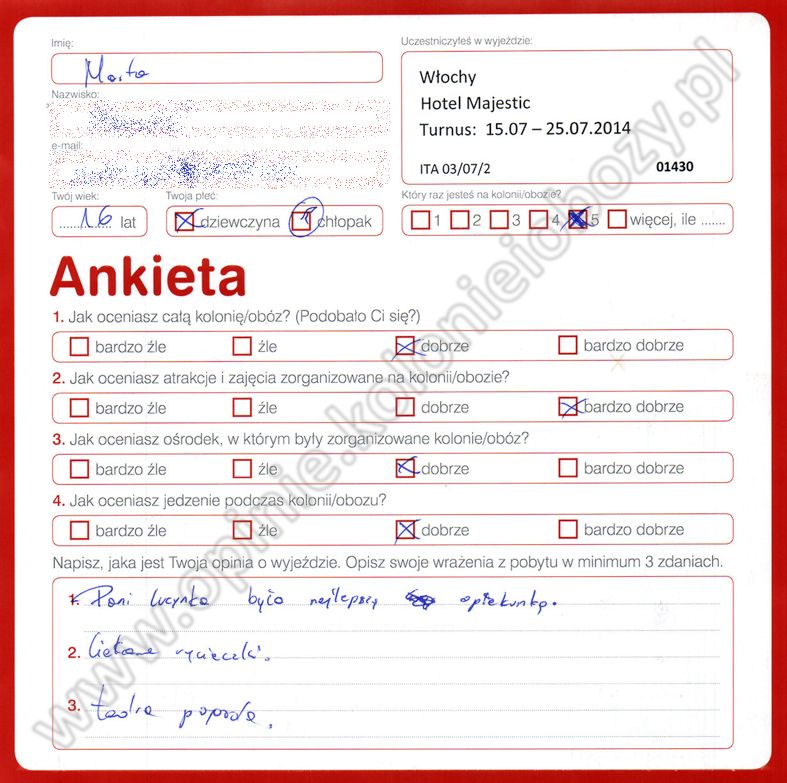 Imię:
Uczestniczyłeś w wyjeździe:
Marta
Włochy
Hotel Majestic
Turnus: 15.07 – 25.07.2014
ITA 03/07/2
01430
Nazwisko:
e-mail:
Twój wiek:
Twoja płeć:
Który raz jesteś na kolonii/obozie?
16 lat
dziewczyna
chłopak
1 2 3 4 5 więcej, ile .......
Ankieta
1. Jak oceniasz całą kolonię/obóz? (Podobało Ci się?)
bardzo źle źle dobrze bardzo dobrze
2. Jak oceniasz atrakcje i zajęcia zorganizowane na kolonii/obozie?
bardzo źle źle dobrze bardzo dobrze
3. Jak oceniasz ośrodek, w którym były zorganizowane kolonie/obóz?
bardzo źle źle dobrze bardzo dobrze
4. Jak oceniasz jedzenie podczas kolonii/obozu?
bardzo źle źle dobrze bardzo dobrze
Napisz, jaka jest Twoja opinia o wyjeździe. Opisz swoje wrażenia z pobytu w minimum 3 zdaniach.
1. Pani Lucynka była najlepszą opiekunką.
2. Ciekawe wycieczki.
3. Ładna pogoda.
www.opinie.kolonieiobozy.pl